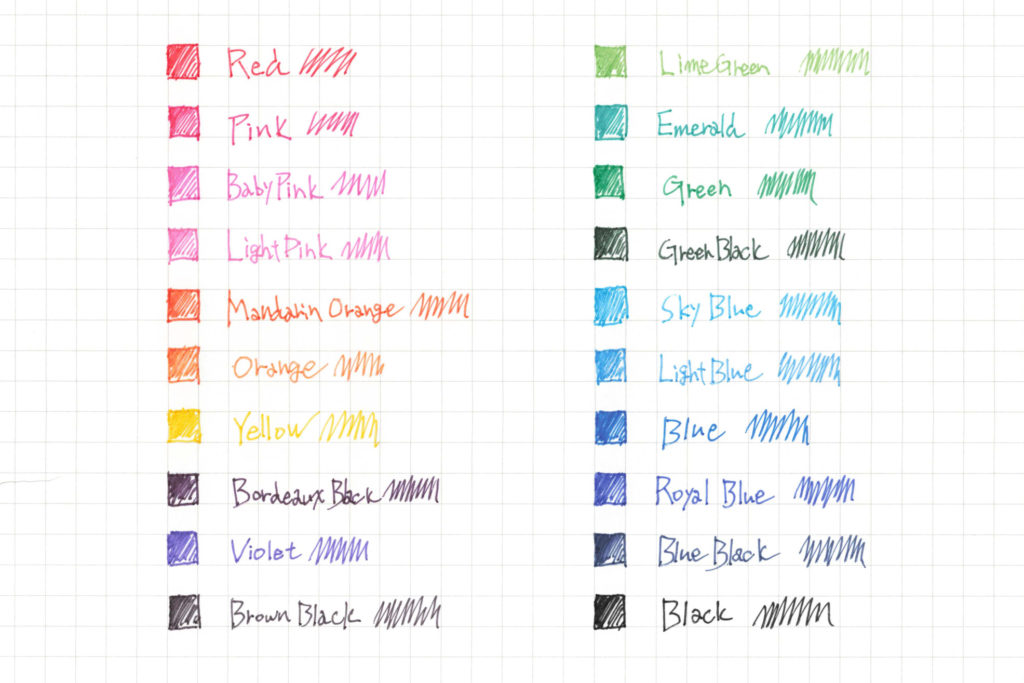 Red
Pink
Baby Pink
Light Pink
Mandarin Orange
Orange
Yellow
Bordeaux Black
Violet
Brown Black
Lime Green
Emerald
Green
Green Black
Sky Blue
Light Blue
Blue
Royal Blue
Blue Black
Black